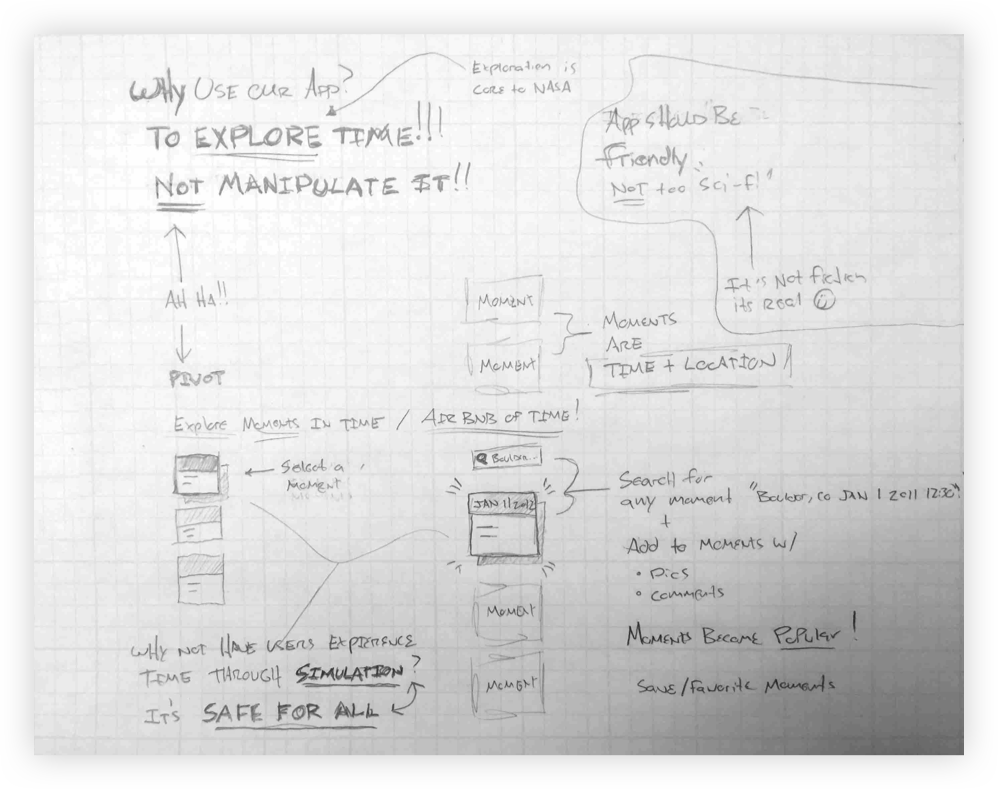 Why Use our App?
To EXPLORE TIME!!!
NOT MANIPULATE IT!!
Exploration is
core to NASA
App should Be
friendly.
NOT too "sci-fi"
It's Not fiction
its real
AH HA!!
PIVOT
MOMENT
MOMENT
MOMENTS
ARE
TIME + LOCATION
Explore Moments IN TIME / AIR BNB OF TIME!
Select a
MOMENT
JAN 1 2012
MOMENT
MOMENT
Search for
any moment "Boulder, CO JAN 1 2011 12:30"
+
Add to moments w/
• Pics
• comments
Moments Become Popular!
Save/Favorite Moments
WHY NOT HAVE USERS EXPERIENCE
TIME THROUGH SIMULATION?
IT'S SAFE FOR ALL